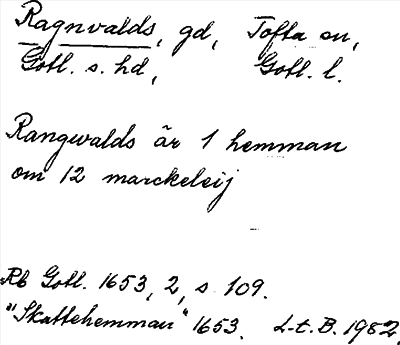 Ragnvalds, gd, Tofta sn,
Gotl. s. hd, Gotl. l.
Rangwalds är 1 hemman
om 12 marckeleij
Rb Gotl. 1653, 2, s 109.
"Skattehemman" 1653. L-t. B. 1982.